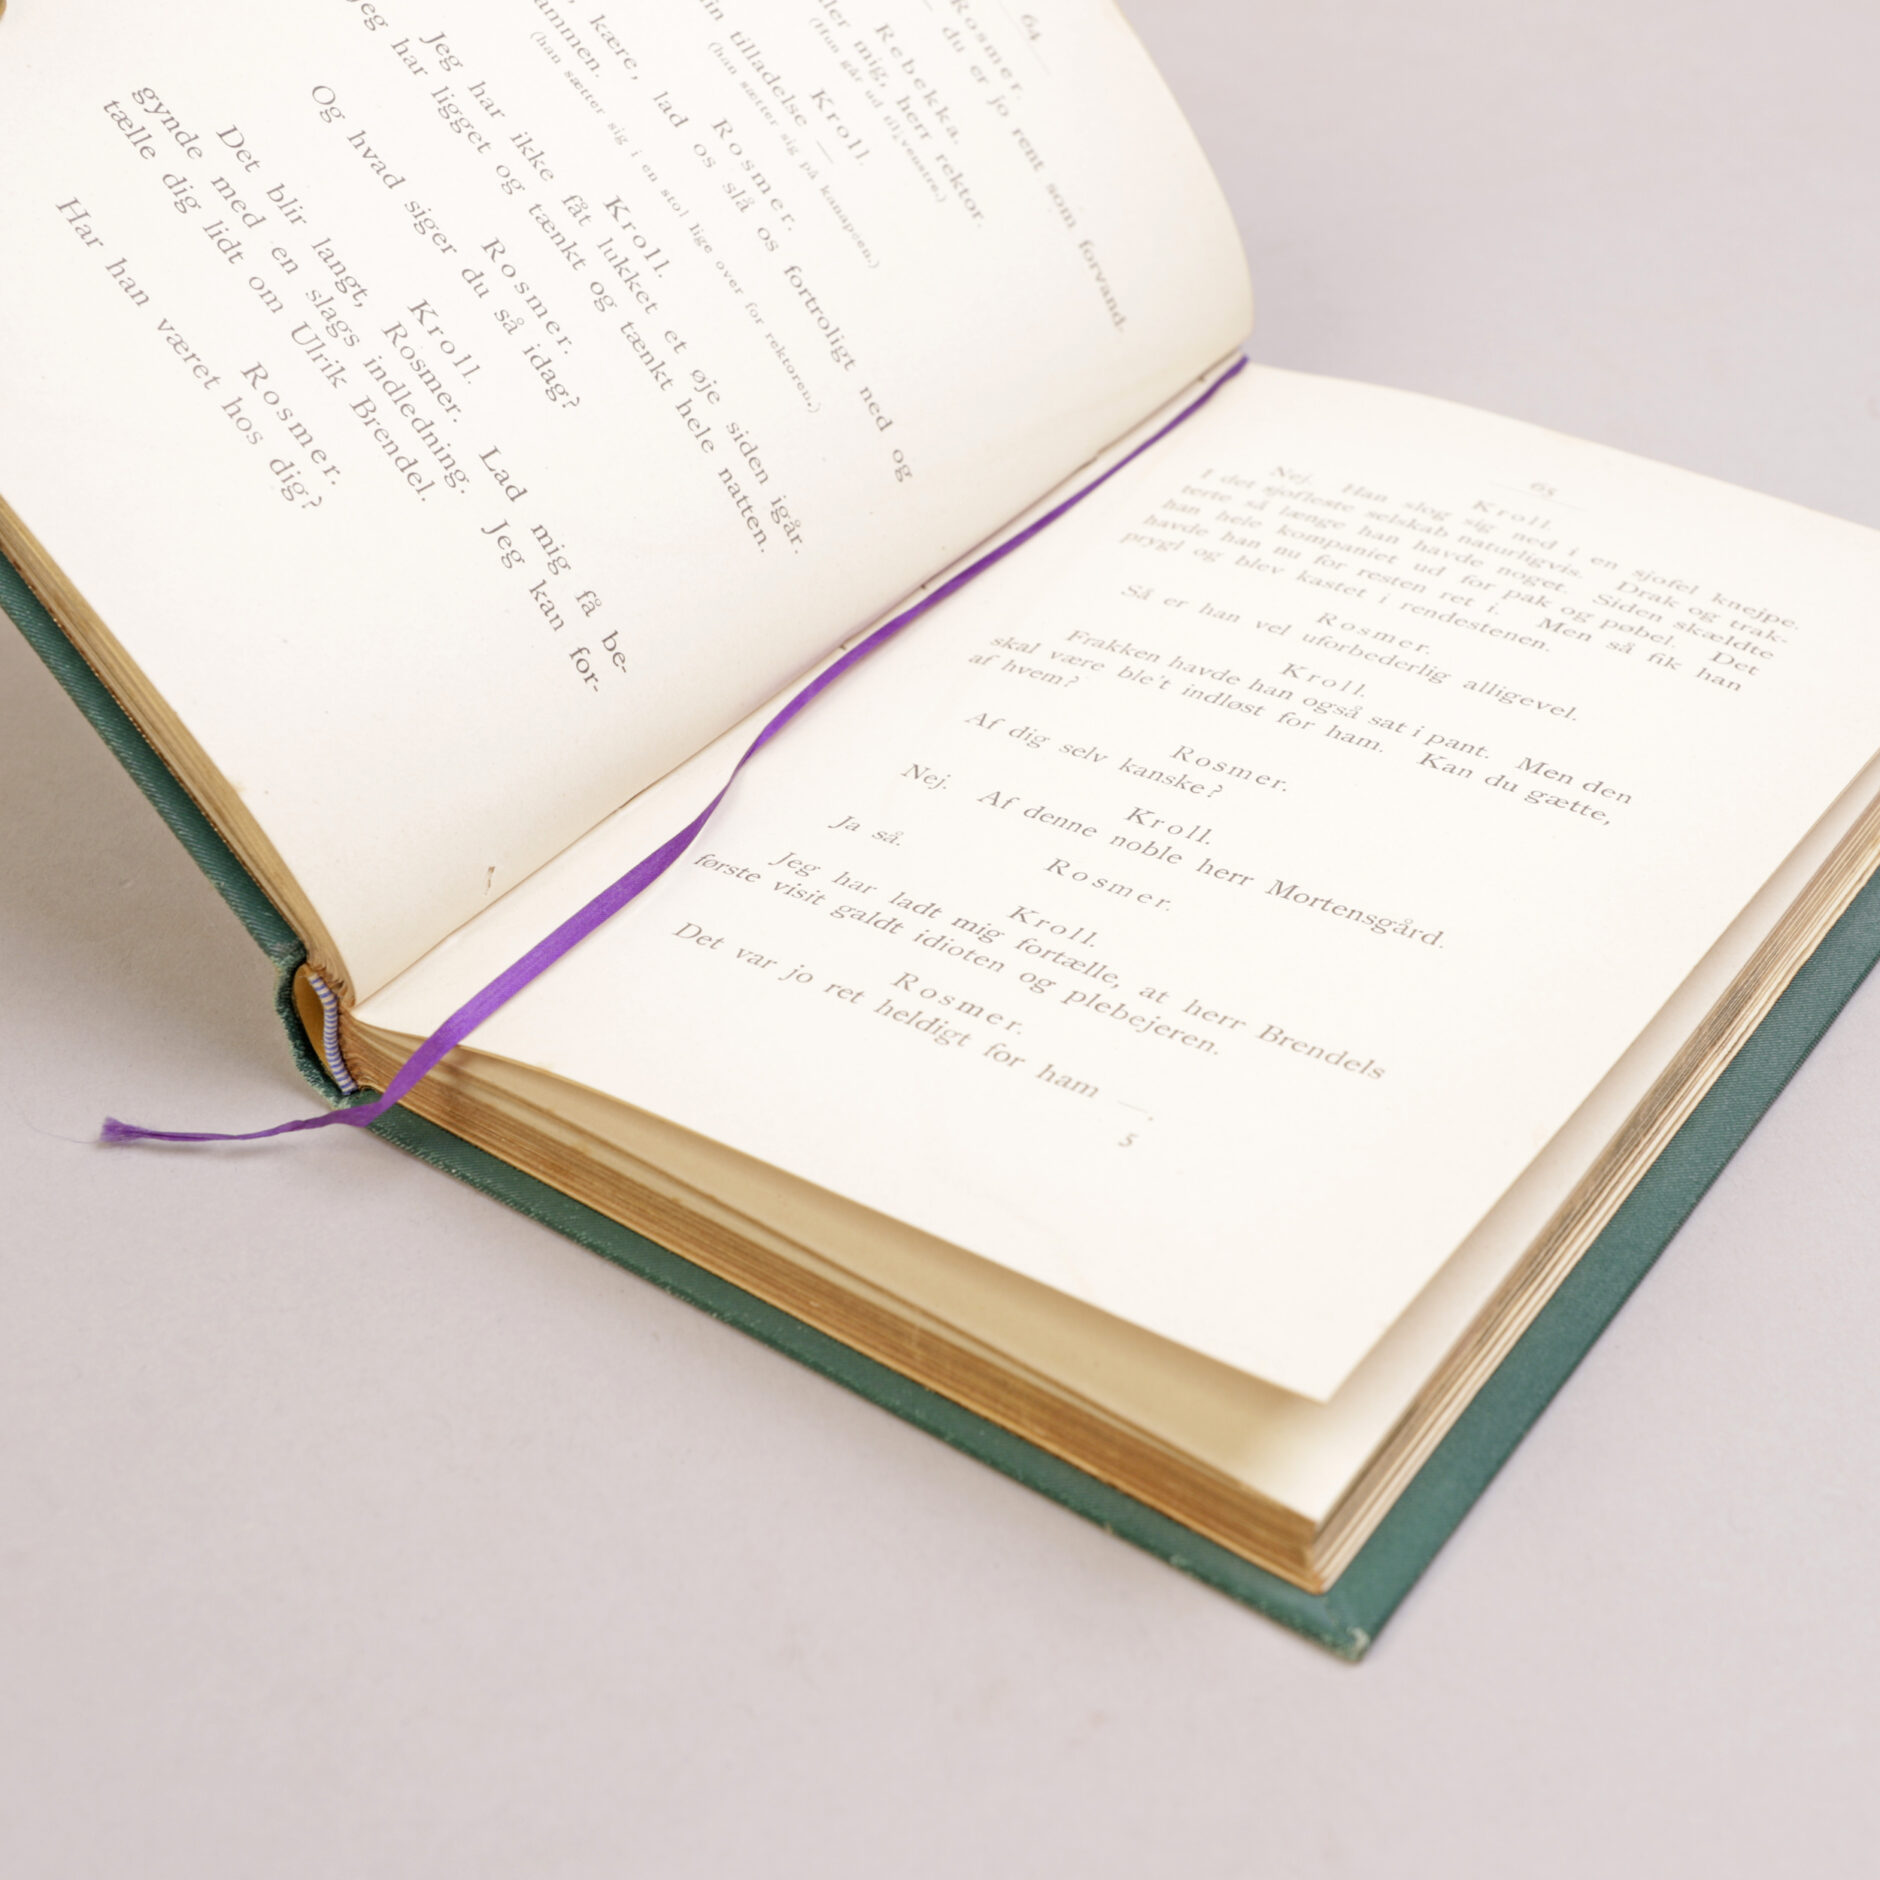 64
Rosmer.
— du er jo rent som forvand.
Rebekka.
mig, herr rektor.
(Hun går ud til venstre.)
Kroll.
tilladelse —
(han sætter sig på kanapeen.)
Rosmer.
kære, lad os slå os fortroligt ned og
(han sætter sig i en stol lige over for rektoren.)
Kroll.
Jeg har ikke fåt lukket et øje siden igår.
har ligget og tænkt og tænkt hele natten.
Rosmer.
Og hvad siger du så idag?
Kroll.
Det blir langt, Rosmer. Lad mig få be-
gynde med en slags indledning. Jeg kan for-
tælle dig lidt om Ulrik Brendel.
Rosmer.
Har han været hos dig?
65
Kroll.
Nej. Han slog sig ned i en sjofel knejpe.
I det sjofleste selskab naturligvis. Drak og trak-
terte så længe han havde noget. Siden skældte
han hele kompaniet ud for pak og pøbel. Det
havde han nu for resten ret i. Men så fik han
prygl og blev kastet i rendestenen.
Rosmer.
Så er han vel uforbederlig alligevel.
Kroll.
Frakken havde han også sat i pant. Men den
skal være ble't indløst for ham. Kan du gætte,
af hvem?
Rosmer.
Af dig selv kanske?
Kroll.
Nej. Af denne noble herr Mortensgård.
Rosmer.
Ja så.
Kroll.
Jeg har ladt mig fortælle, at herr Brendels
første visit galdt idioten og plebejeren.
Rosmer.
Det var jo ret heldigt for ham —.
5